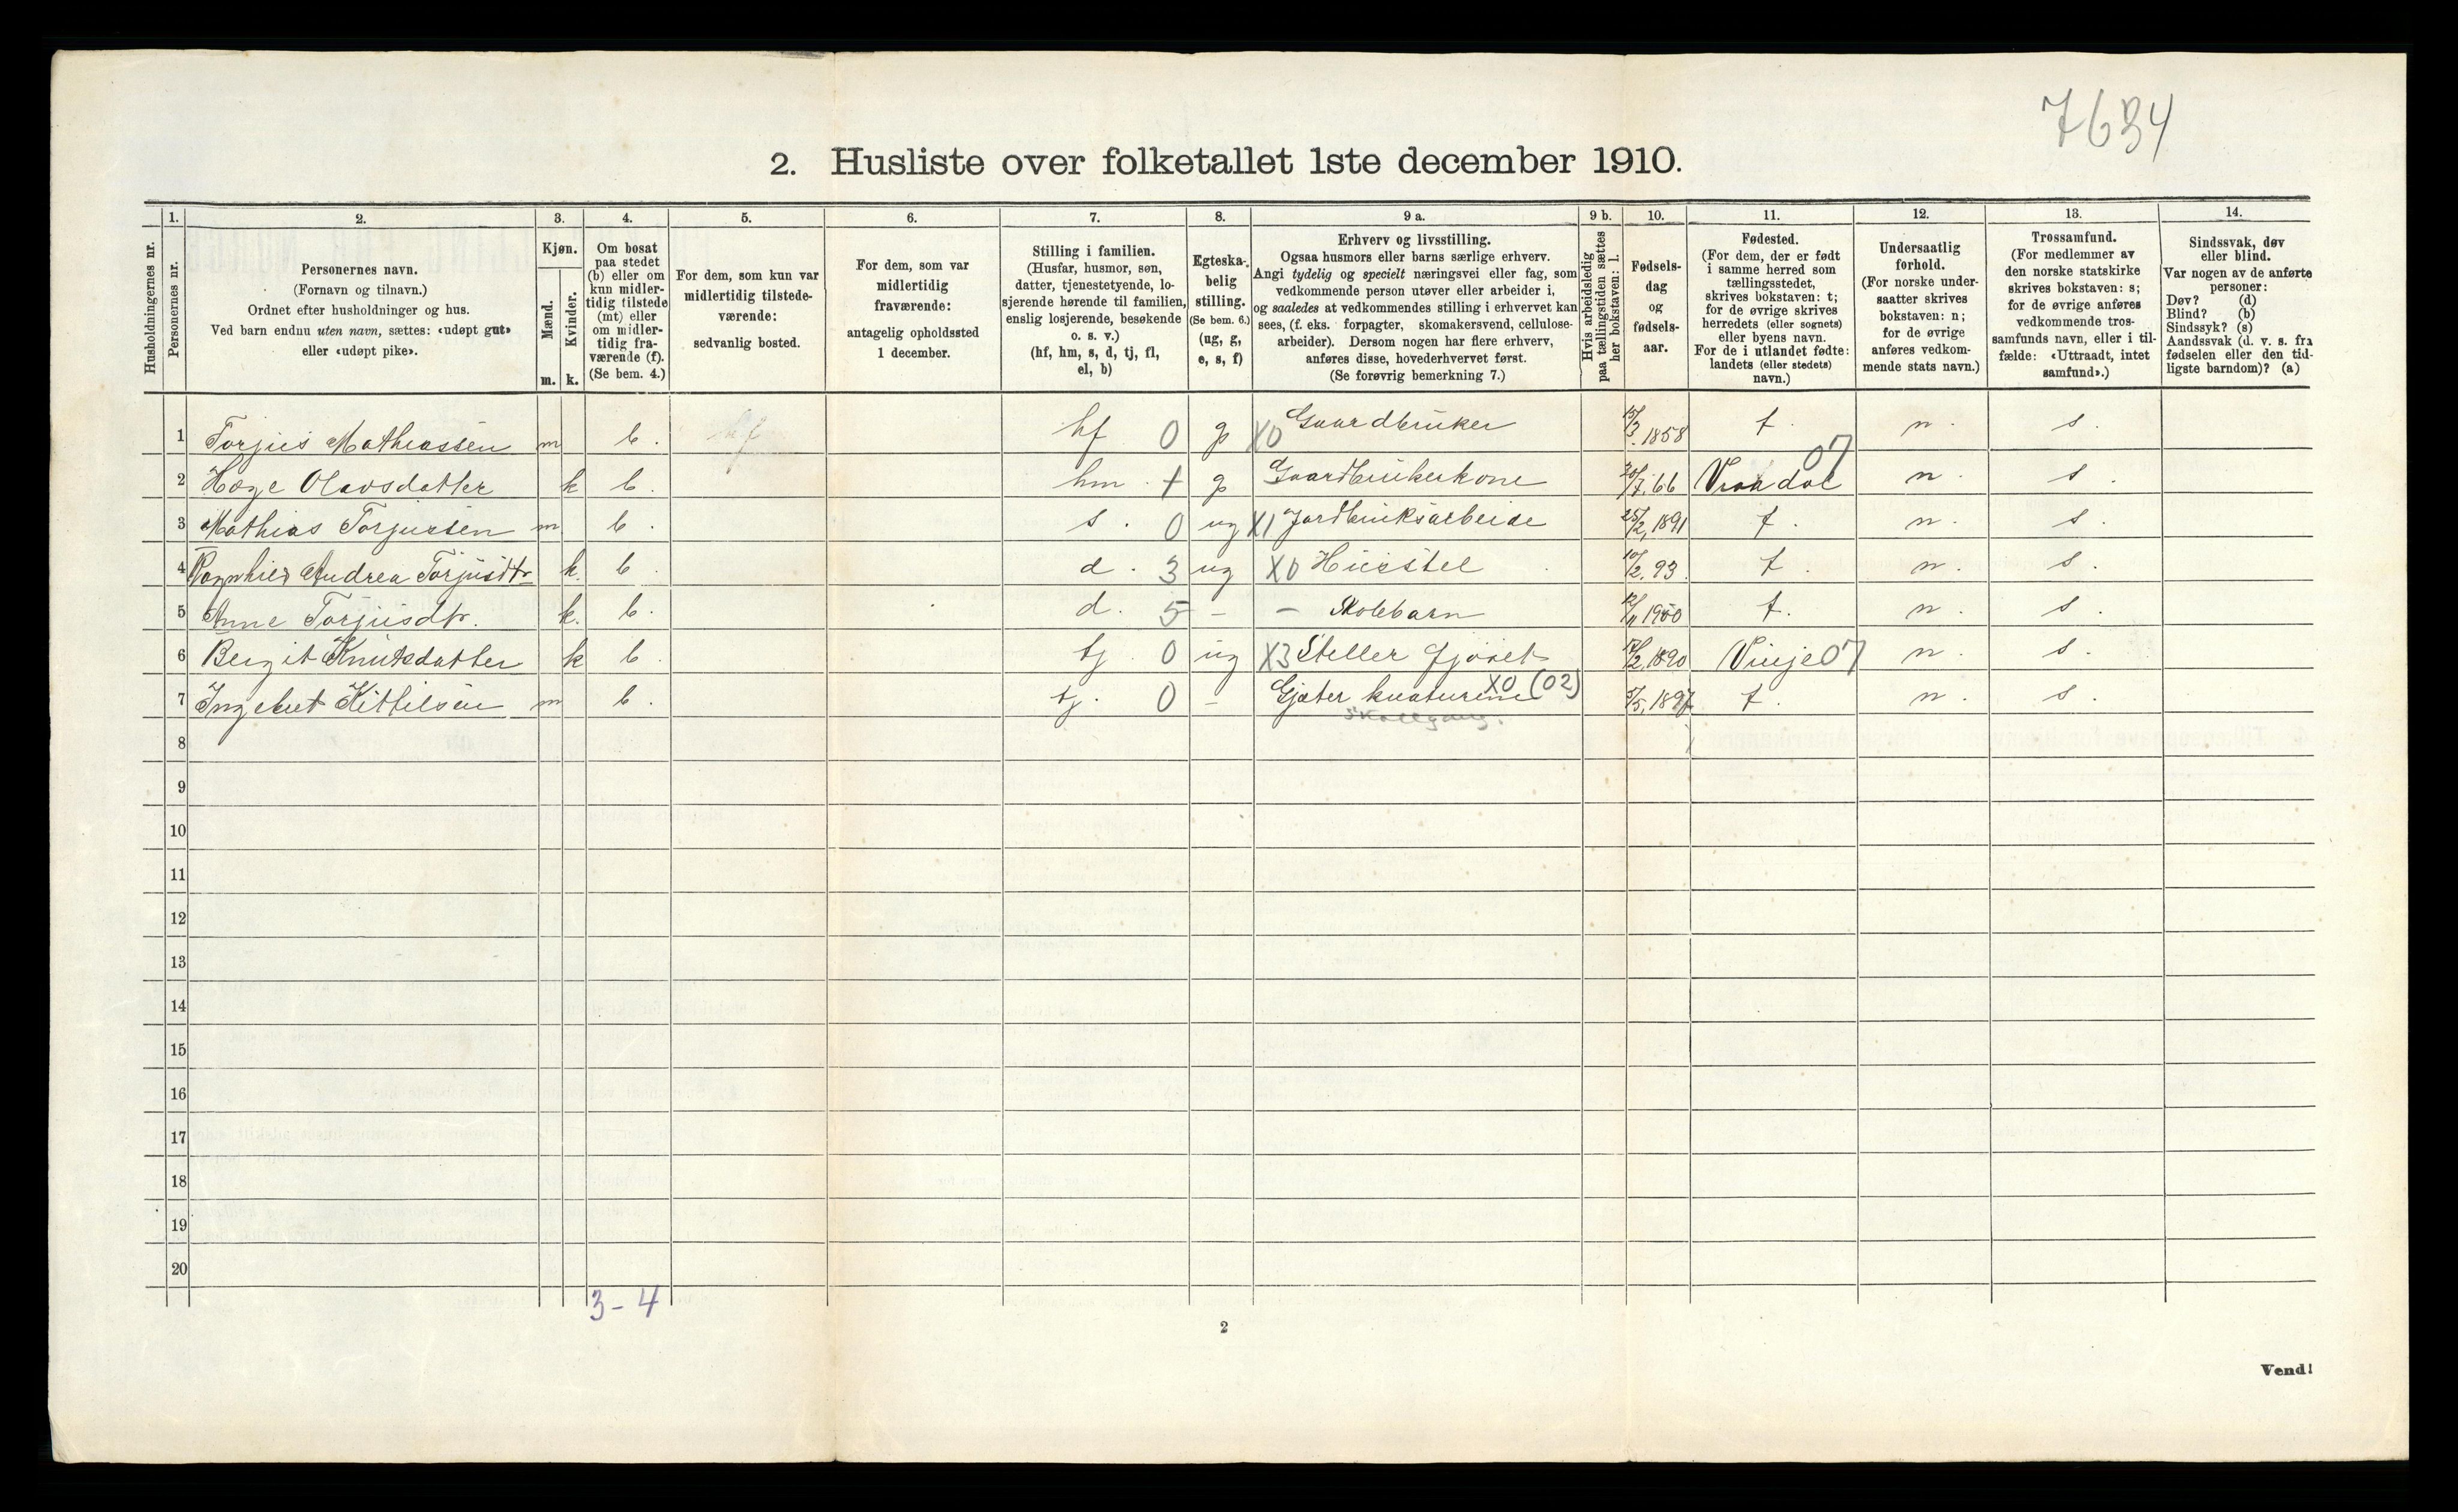 7634
2. Husliste over folketallet 1ste december 1910.
Husholdningernes nr.
1.
Personernes nr.
2.
Personernes navn.
(Fornavn og tilnavn.)
Ordnet efter husholdninger og hus.
Ved barn endnu uten navn, sættes: «udøpt gut»
eller «udøpt pike».
3.
Kjøn.
Mænd.
Kvinder.
m. k.
4.
Om bosat
paa stedet
(b) eller om
kun midler-
tidig tilstede
(mt) eller
om midler-
tidig fra-
værende (f).
(Se bem. 4.)
5.
For dem, som kun var
midlertidig tilstede-
værende:
sedvanlig bosted.
6.
For dem, som var
midlertidig
fraværende:
antagelig opholdssted
1 december.
7.
Stilling i familien.
(Husfar, husmor, søn,
datter, tjenestetyende, lo-
sjerende hørende til familien,
enslig losjerende, besøkende
o. s. v.)
(hf, hm, s, d, tj, fl,
el, b)
8.
Egteska-
belig
stilling.
(Se bem. 6.)
(ug, g,
e, s, f)
9 a.
Erhverv og livsstilling.
Ogsaa husmors eller barns særlige erhverv.
Angi tydelig og specielt næringsvei eller fag, som
vedkommende person utøver eller arbeider i,
og saaledes at vedkommendes stilling i erhvervet kan
sees, (f. eks. forpagter, skomakersvend, cellulose-
arbeider). Dersom nogen har flere erhverv,
anføres disse, hovederhvervet først.
(Se forøvrig bemerkning 7.)
9 b.
Hvis arbeidsledig
paa tællingstiden sættes
her bokstaven: l.
10.
Fødsels-
dag
og
fødsels-
aar.
11.
Fødested.
(For dem, der er født
i samme herred som
tællingsstedet,
skrives bokstaven: t;
for de øvrige skrives
herredets (eller sognets)
eller byens navn.
For de i utlandet fødte:
landets (eller stedets)
navn.)
12.
Undersaatlig
forhold.
(For norske under-
saatter skrives
bokstaven: n;
for de øvrige
anføres vedkom-
mende stats navn.)
13.
Trossamfund.
(For medlemmer av
den norske statskirke
skrives bokstaven: s;
for de øvrige anføres
vedkommende tros-
samfunds navn, eller i til-
fælde: «Uttraadt, intet
samfund».)
14.
Sindssvak, døv
eller blind.
Var nogen av de anførte
personer:
Døv? (d)
Blind? (b)
Sindssyk? (s)
Aandssvak (d. v. s. fra
fødselen eller den tid-
ligste barndom)? (a)
1 Torjus Mathiassen m b. hf 0 g X0 Gaardbruker 15/3 1858 t. n. s.
2 Hæge Olavsdatter k b. hm. + g Gaardbrukerkone 20/7.66 Vraadal 07 n. s.
3 Mathias Torjussen m b. s. 0 ug X1 Jordbruksarbeide 25/2,1891 t. n. s.
4 Ragnhild Andrea Torjusdtr k. b. d. 3 ug X0 Husstel 10/2.93 t. n. s.
5 Anne Torjusdtr. k. b. d. 5 - - Skolebarn 12/11 1900 t. n. s.
6 Bergit Knutsdatter k b. tj. 0 ug X3 Steller fjöset 17/2,1890 (Vinje 07 n. s.
7 Ingebret Kittilsen m b. tj. 0 - Gjæter kreaturene X0 (02) 5/5,1897 t. n. s.
Skolegang.
8
9
10
11
12
13
14
15
16
17
18
19
20
3-4
2
Vend!